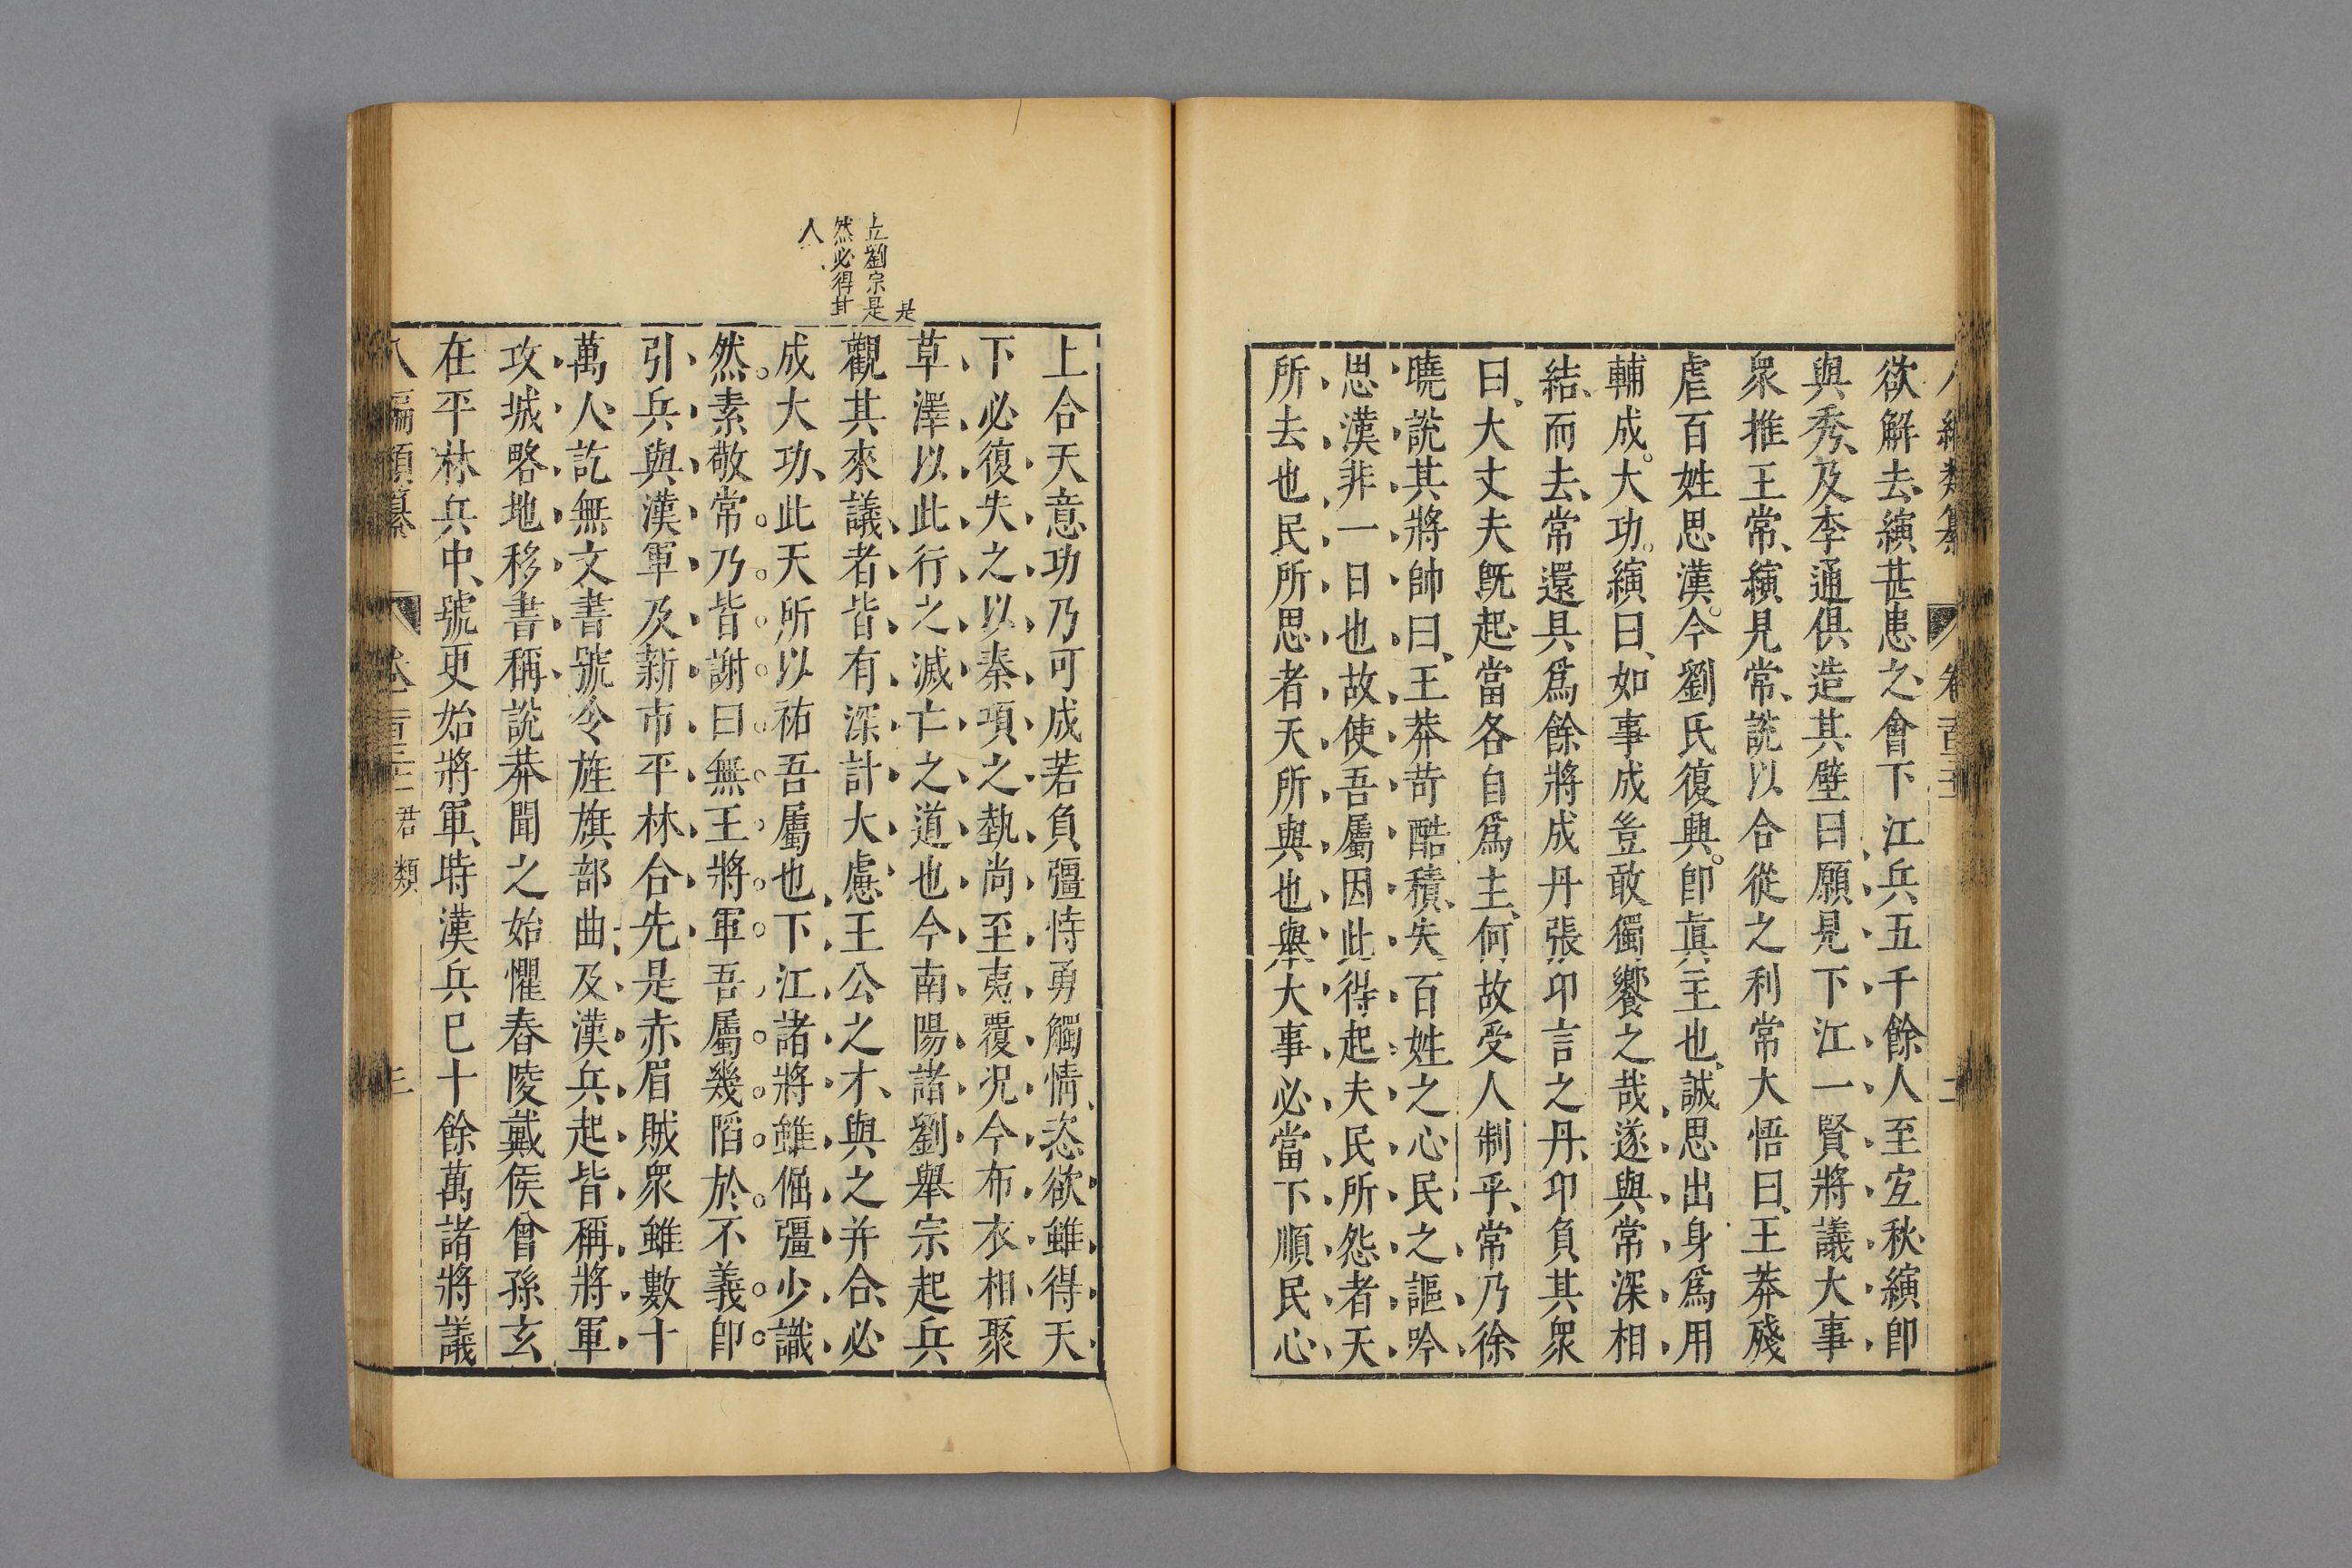 欲解去縯甚患之會下江兵五千餘人至宜秋縯卽
與秀及李通俱造其壁曰願見下江一賢將議大事
衆推王常縯見常說以合從之利常大悟曰王莽殘
虐百姓思漢今劉氏復興卽真主也誠思出身爲用
輔成大功縯曰如事成豈敢獨饗之哉遂與常深相
結而去常還具爲餘將成丹張卬言之丹卬負其衆
曰大丈夫旣起當各自爲主何故受人制乎常乃徐
曉說其將帥曰王莽苛酷積失百姓之心民之謳吟
思漢非一日也故使吾屬因此得起夫民所怨者天
所去也民所思者天所與也舉大事必當下順民心
是
立劉宗是
然必得其
人
上合天意功乃可成若負彊恃勇觸情恣欲雖得天
下必復失之以秦項之埶尚至夷覆況今布衣相聚
草澤以此行之滅亡之道也今南陽諸劉舉宗起兵
觀其來議者皆有深計大慮王公之才與之并合必
成大功此天所以祐吾屬也下江諸將雖倔彊少識
然素敬常乃皆謝曰無王將軍吾屬幾陷於不義卽
引兵與漢軍及新市平林合先是赤眉賊衆雖數十
萬人訖無文書號令旌旗部曲及漢兵起皆稱將軍
攻城略地移書稱說莽聞之始懼舂陵戴侯曾孫玄
在平林兵中號更始將軍時漢兵已十餘萬諸將議
八編類纂 君類 三